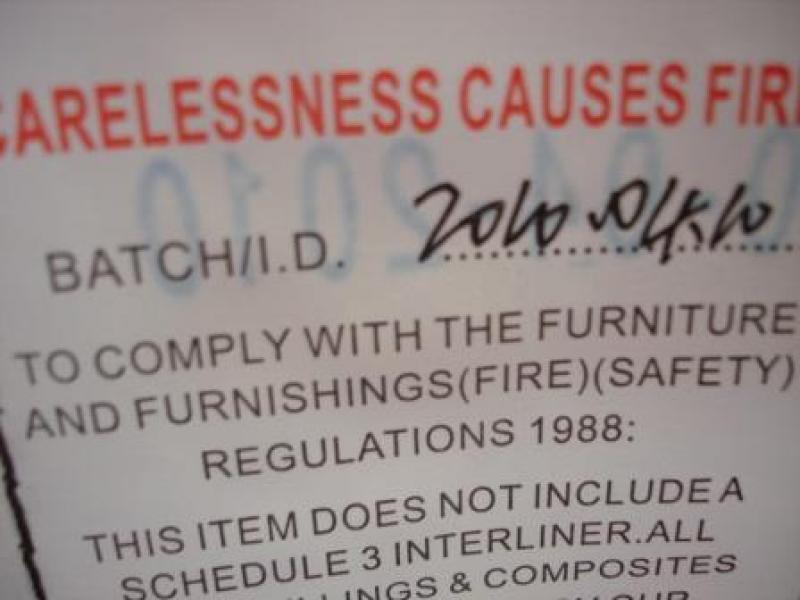 CARELESSNESS CAUSES FIR
BATCH/I.D. 2010.04.10
TO COMPLY WITH THE FURNITURE
AND FURNISHINGS(FIRE)(SAFETY)
REGULATIONS 1988:
THIS ITEM DOES NOT INCLUDE A
SCHEDULE 3 INTERLINER.ALL
LINGS & COMPOSITES
OUR